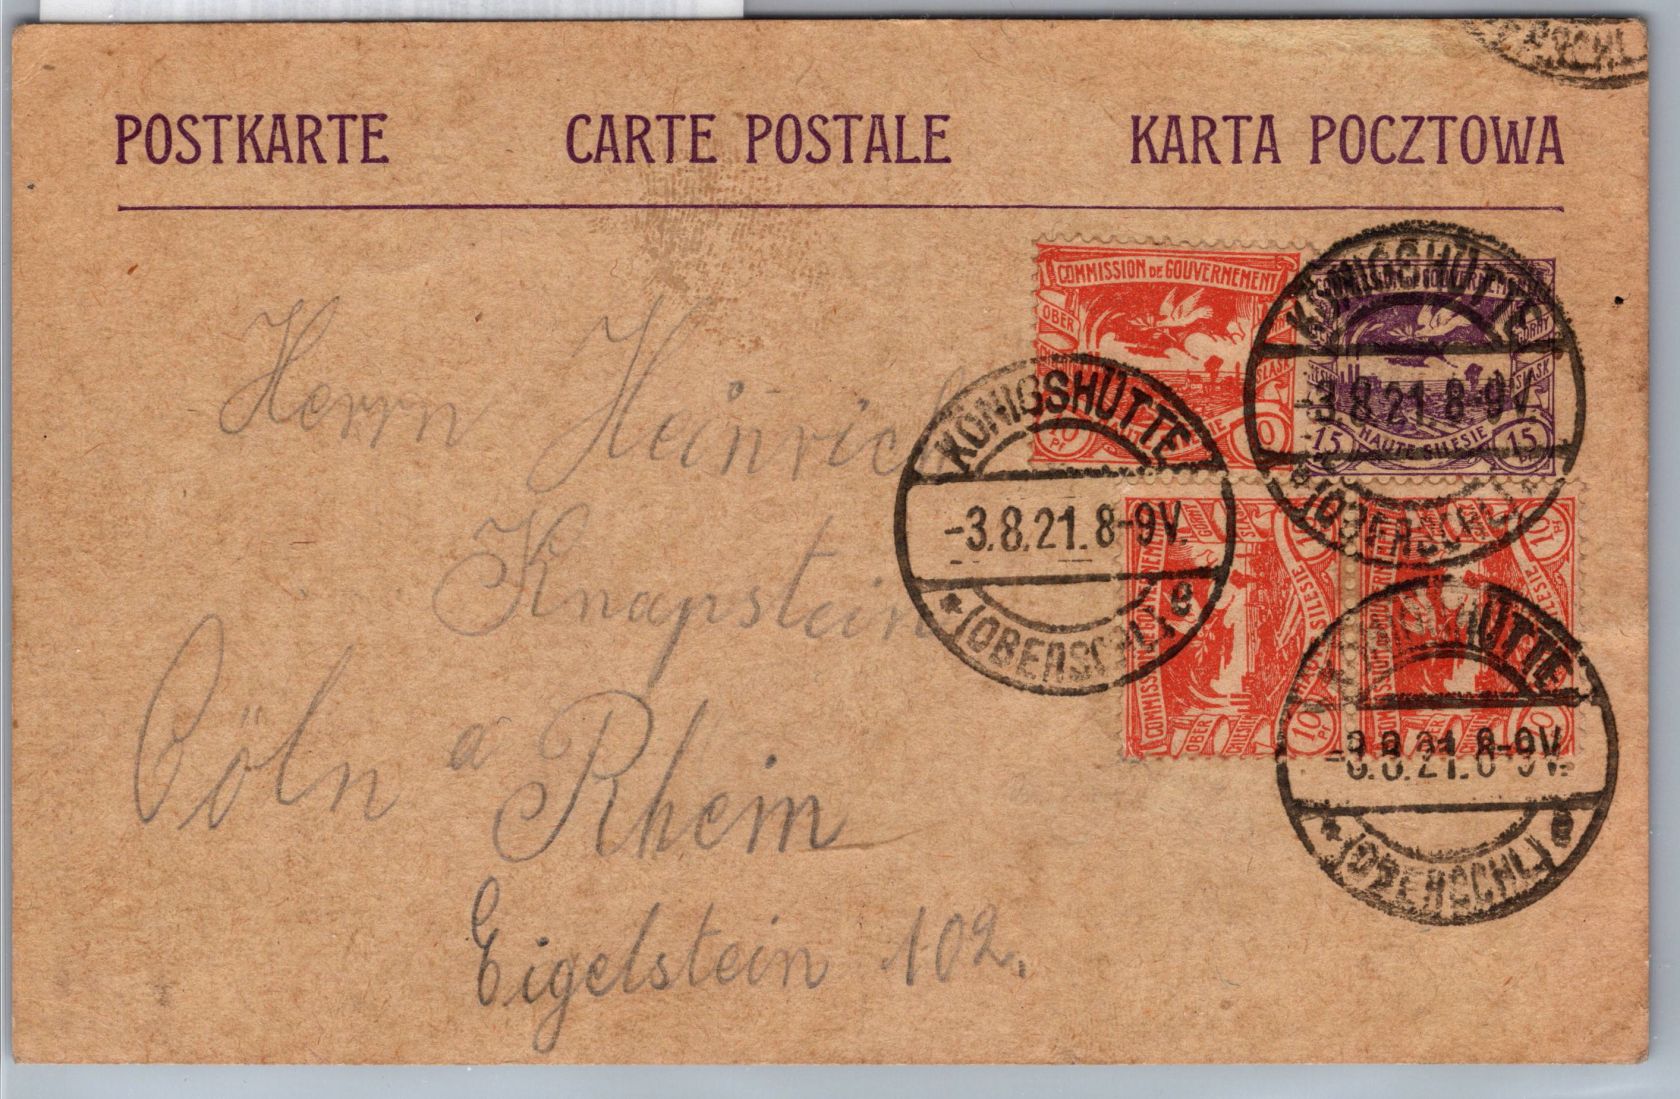 POSTKARTE CARTE POSTALE KARTA POCZTOWA
COMMISSION DE GOUVERNEMENT
OBER
ŚLĄSK
HAUTE SILESIE
15 15
KÖNIGSHÜTTE
-3.8.21.8-9V.
*(OBERSCHL.) e
KÖNIGSHÜTTE
-3.8.21.8-9V.
(OBERSCHL.)
COMMISSION DE GOUVERNEMENT
OBER
10 Pf
-3.8.21.8-9V.
*(OBERSCHL.) e
Herrn Heinrich
Knapstein
Cöln a Rhein
Eigelstein 102.